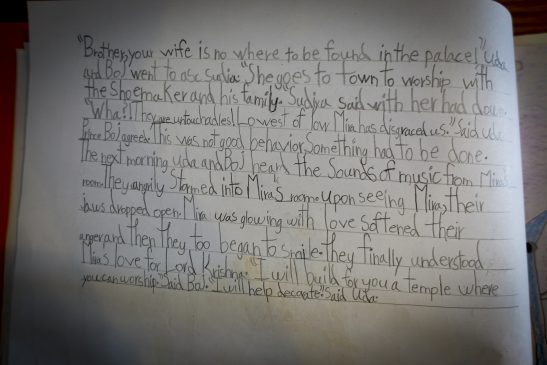 "Brother, your wife is no where to be found in the palace!" Uda
and BoJ went to ase sudjia "She goes to town to worship with
the Shoemaker and his family." Sudjia said with her had down.
"Wha?! They are untouchables! Lowest of low Mira has disgraced us." Said Uda
Prince BoJ agreed. This was not good behavior, something had to be done.
The next morning Uda and BoJ heard the Sounds of music from Mira's
room. They angrily Stormed into Mira's room upon seeing Miras their
jaws dropped open. Mira was glowing with love softened their
anger and then they too began to smile. They finally understood
Mira's love for Lord Krishna. "I will build for you a temple where
you can worship." Said BoJ. "I will help decorate." Said Uda.